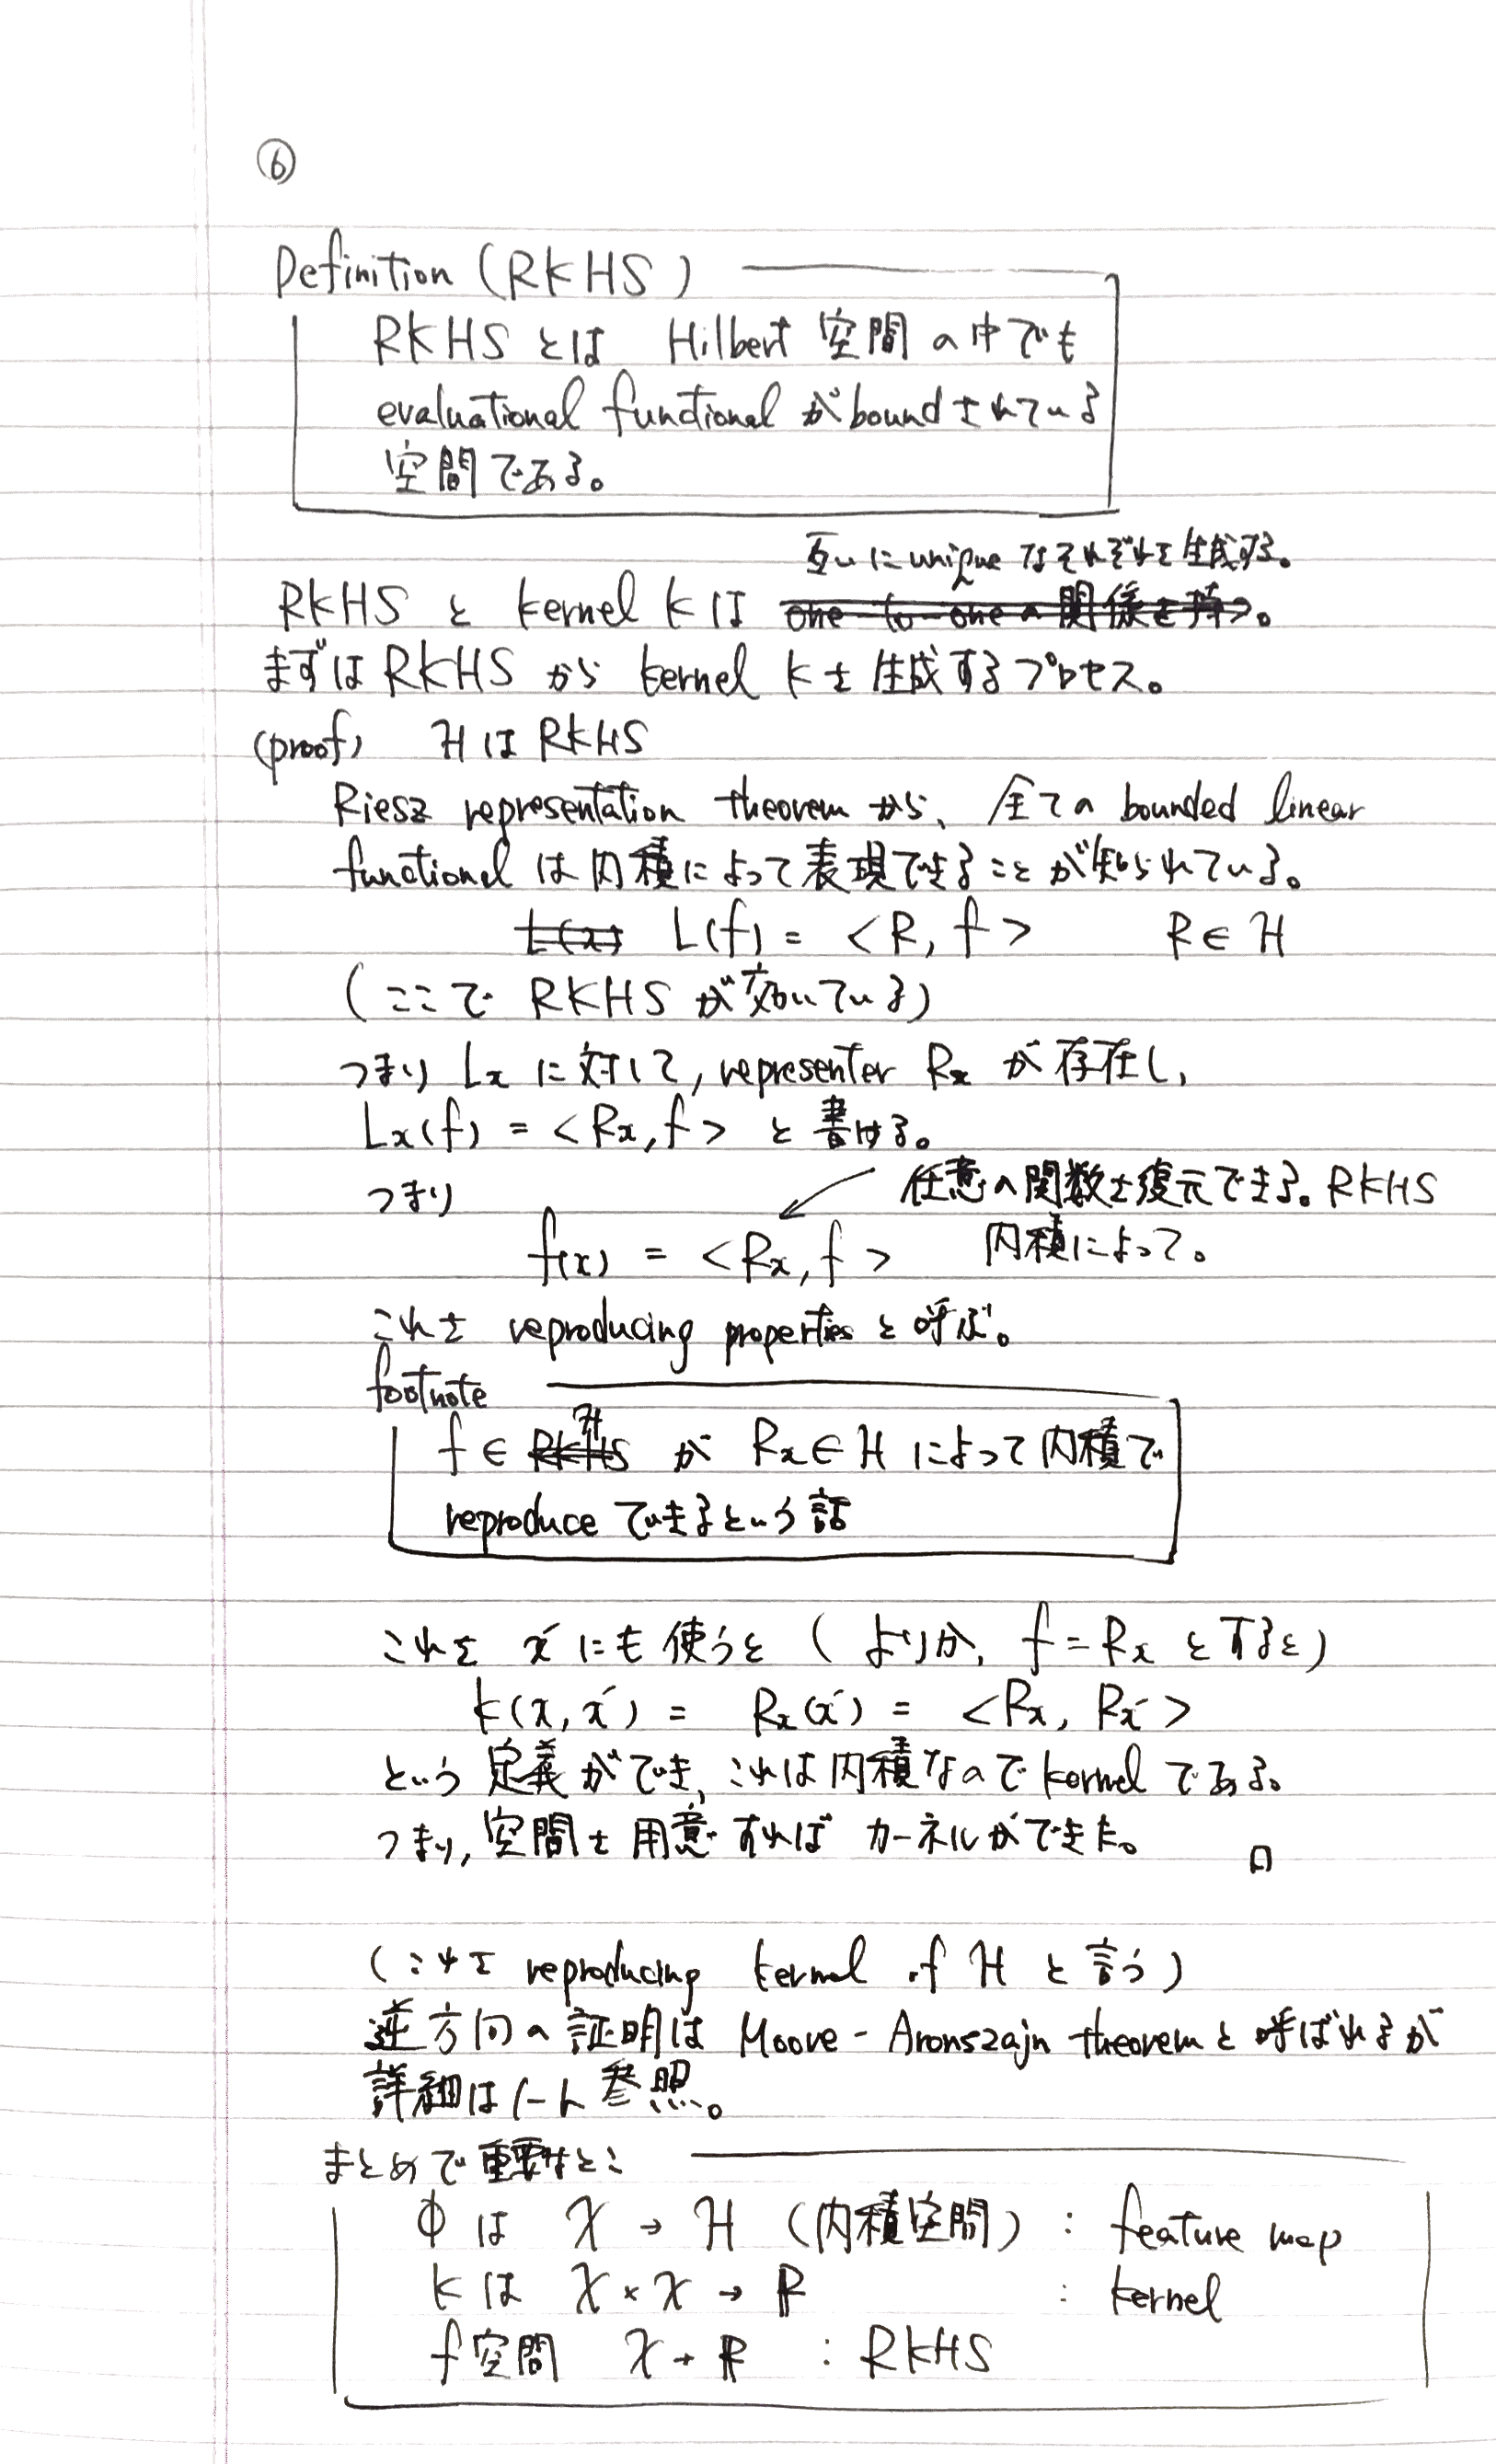 ⑥
Definition (RKHS)
RKHS とは Hilbert 空間の中でも
evaluational functional が bound されている
空間である。
互いに unique なそれぞれを生成する。
RKHS と kernel k は one-to-one の関係を持つ。
まずは RKHS から kernel k を生成するプロセス。
(proof) H は RKHS
Riesz representation theorem から、全ての bounded linear
functional は内積によって表現できることが知られている。
L(x) L(f) = <R, f> R ∈ H
(ここで RKHS が効いている)
つまり Lx に対して, representer Rx が存在し,
Lx(f) = <Rx, f> と書ける。
つまり 任意の関数を復元できる。RKHS
f(x) = <Rx, f> 内積によって。
これを reproducing properties と呼ぶ。
footnote
H
f ∈ RKHS が Rx ∈ H によって内積で
reproduce できるという話
これを x́ にも使うと ( よりか, f = Rx とすると)
k(x, x́) = Rx(x́) = <Rx, Rx́>
という定義ができ, これは内積なので kernel である。
つまり, 空間を用意すればカーネルができた。 □
(これを reproducing kernel of H と言う)
逆方向の証明は Moore - Aronszajn theorem と呼ばれるが
詳細はノート参照。
まとめで重要なとこ
Φ は X → H (内積空間) : feature map
k は X × X → R : kernel
f空間 X → R : RKHS